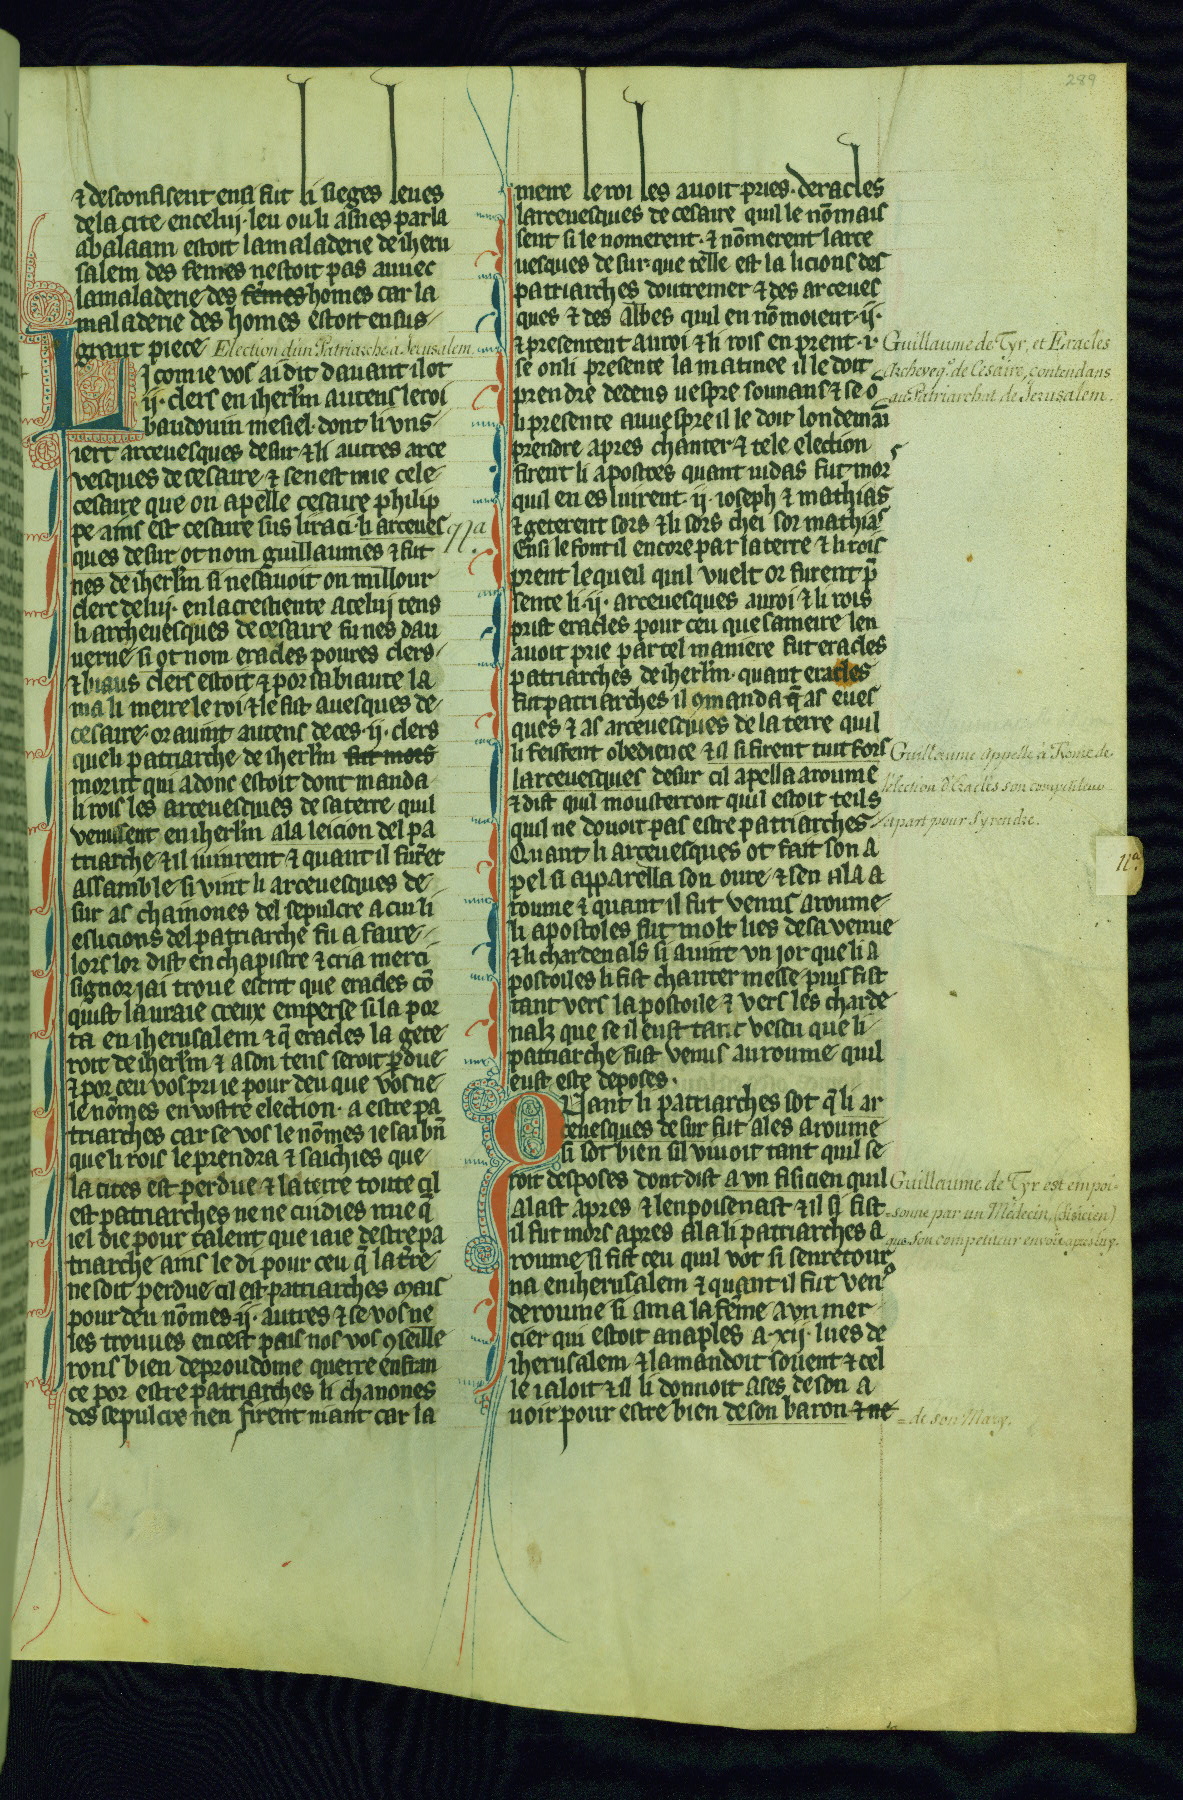 289
⁊ desconfisent ensi fut li sieges leues
de la cite en celuj· leu ou li asnes parla
a balaam estoit la maladerie de iheru
salem des femes nestoit pas auuec
la maladerie des femes homes car la
maladerie des homes estoit ensus·
grant piece
Election d'un Patriarche a Jerusalem.
LJ com ie vos ai dit dauant il ot
ij· clers en iherl'm autens le roi
baudouin mesiel· dont li vns
iert arceuesques de sur ⁊ li autres arce
vesques de cesaire ⁊ se nest mie cele
cesaire que on apelle cesaire philip
pe ains est cesaire sus li raci· li arceues
ques de sur ot nom guillaumes ⁊ fut
nes de iherl'm si ne sauoit on millour
clerc de luj· en la crestiente a celuj tens
li archeuesques de cesaire fu nes dau
uerne si ot nom eracles poures clers·
⁊ biaus clers estoit ⁊ por sa biaute la
ma li meire le roi ⁊ le fist auesques de
cesaire· or auint autens de ces· ij· clers
que li patriarche de iherl'm fut mors
morut qui adonc estoit dont manda
li rois les arceuesques de sa terre quil
venissent en iherl'm a la leicion del pa
triarche ⁊ il uinrent ⁊ quant il furet
assamble si vint li arceuesques de
sur as chanones del sepulcre a cui li
eslicions del patriarche fu a faire
lors lor dist en chapistre ⁊ cria merci
signor jai troue escrit que eracles cō
quist la uraie creux em perse si la por
ta en iherusalem ⁊ q̄ eracles la gete
roit de iherl'm ⁊ a son tens seroit ꝑdue
⁊ por ceu vos pri ie pour deu que vos ne
le nōmes en vostre election· a estre pa
triarches car se vos le nōmes ie sai bn̄
que li rois le prendra ⁊ saichies que
la cites est perdue ⁊ la terre toute cil
est patriarches ne ne cuidies mie q̄
iel die pour talent que iaie destre pa
triarche ains le di pour ceu q̄ la t're
ne soit perdue cil est patriarches mais
pour deu nōmes ·ij· autres ⁊ se vos ne
les trouues en cest pais nos vos 9seille
rons bien de proudome querre en fran
ce por estre patriarches li chanones
des sepulcre nen firent niant car la
meire le roi les auoit pries· deracles
larceuesques de cesaire quil le nōmais
sent si le nomerent· ⁊ nōmerent larce
uesques de sur· que telle est la licions des
patriarches doutremer ⁊ des arceues
ques ⁊ des Abes quil en nōmoient ·ij·
⁊ presentent au roi ⁊ li rois en prent ·i·
se on li presente la matinee il le doit
prendre dedens uespre sounans ⁊ se ō
li presente au uespre il le doit londemaī
prendre apres chanter ⁊ tele election
firent li apostres quant iudas fut mor
quil en esluirent ·ij· ioseph ⁊ mathias
⁊ geterent sors ⁊ li sors chei sor mathias
Ensi le font il encore par la terre ⁊ li rois
prent lequeil quil vuelt or furent p̄
sente li ·ij· arceuesques au roi ⁊ li rois
prist eracles pour ceu que sa meire len
auoit prie par tel maniere fut eracles
patriarches de iherl'm· quant eracles
fut patriarches il 9manda q̄ as eues
ques ⁊ as arceuesques de la terre quil
li feissent obedience ⁊ il si firent tuit fors
larceuesques de sur cil apella a roume
⁊ dist quil mousterroit quil estoit teils
quil ne douoit pas estre patriarches
Quant li arceuesques ot fait son a
pel si apparella son oure ⁊ sen ala a
roume ⁊ quant il fut venus a roume
li apostoles fut molt lies de sa venue
⁊ li chardenals si auint vn jor que li a
postoiles li fist chanter messe puis fist
tant vers la postoile ⁊ vers les charde
nalz que se il eust tant vescu que li
patriarche fust venus au roume quil
eust este deposes·
Quant li patriarches sot q̄ li ar
ceuesques de sur fut ales a roume
si sot bien sil viuoit tant quil se
roit desposes dont dist a vn fisicien quil
alast apres ⁊ lenpoisenast ⁊ il si fist
il fut mors apres ala li patriarches a
roume si fist ceu quil vot si senretour
na en iherusalem ⁊ quant il fut ven'
de roume si ama la fēme a vn mer
cier qui estoit a naples a ·xij· lues de
iherusalem ⁊ la mandoit souent ⁊ cel
le i aloit ⁊ il li donnoit ases de son a
uoir pour estre bien de son baron ⁊ ne
Guillaume de Tyr, et Eracles
Archeveq.e de Cesaire, contendans
au Patriarchat de Jerusalem.
Guillaume appelle a Rome de
l'election d'Eracles son competiteur
apart pour s'y rendre.
11.a
Guillaume de Tyr est empoi-
sonné par un Médecin, (fisicien)
que son competiteur envoie apres luy.
= de son Mary.